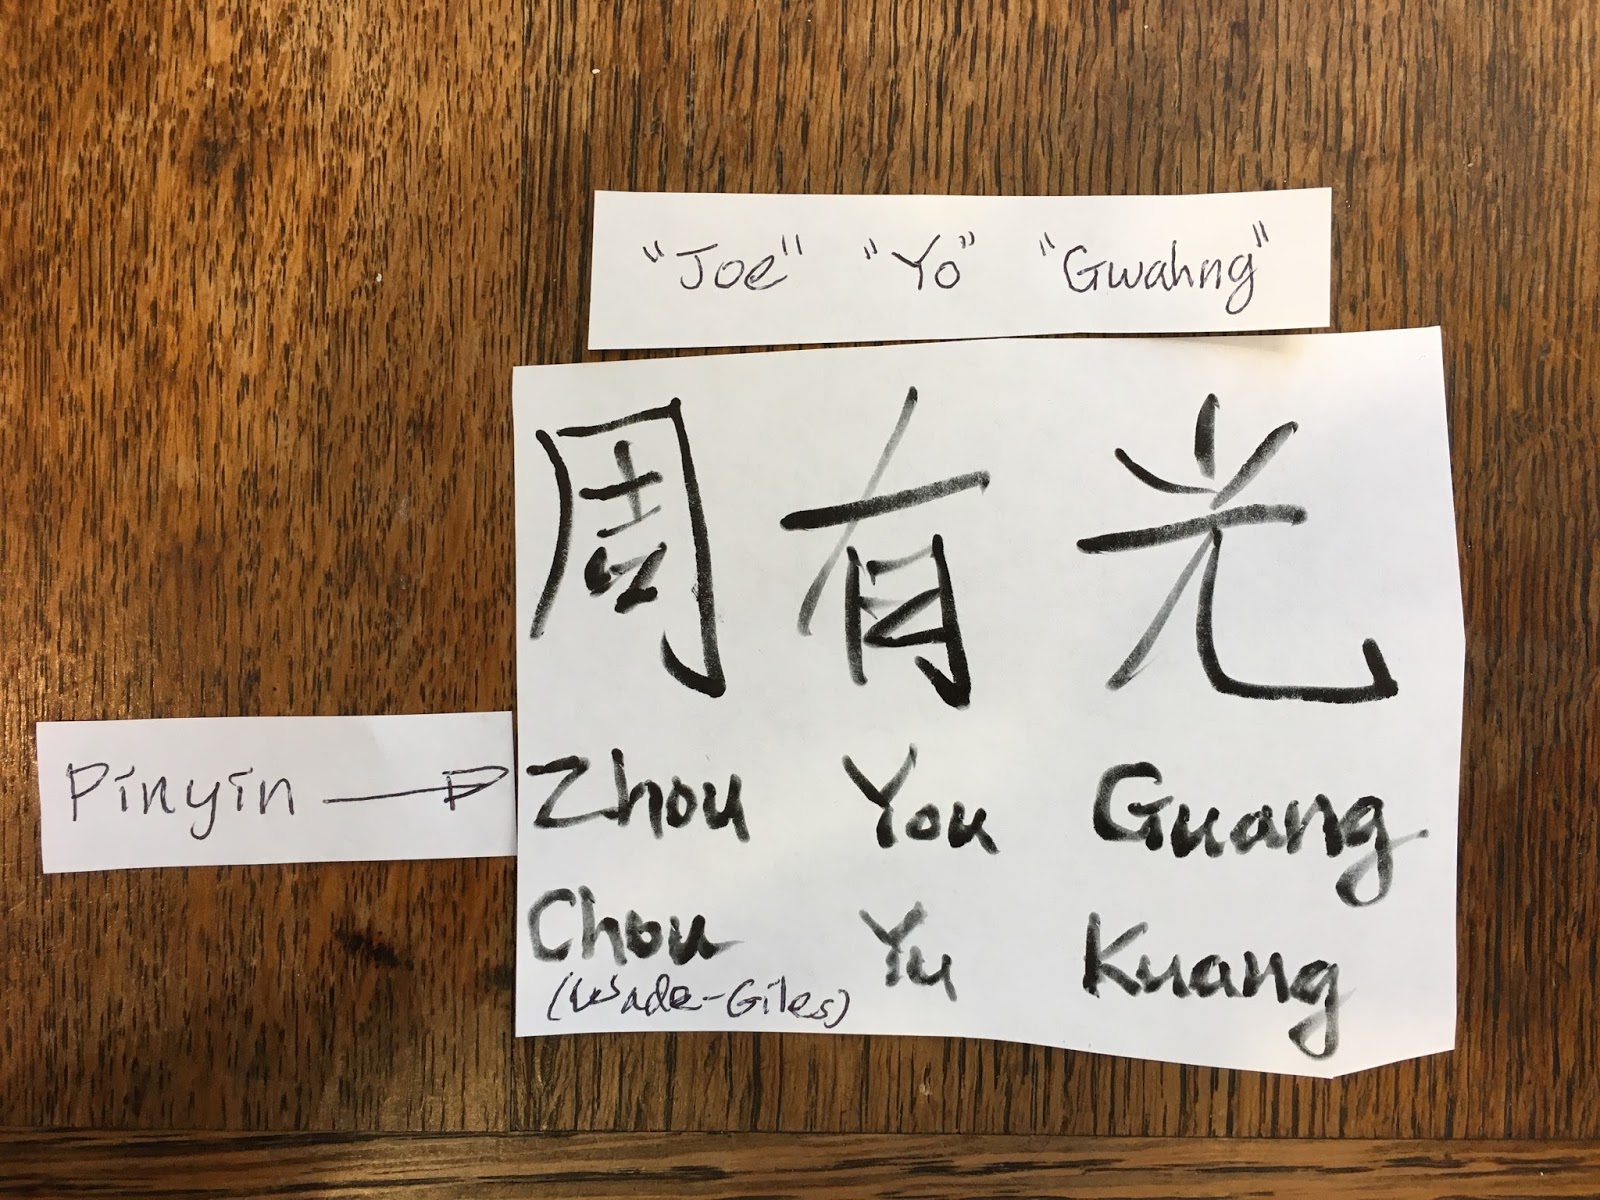 "Joe" "Yo" "Gwahng"
周有光
Pinyin → Zhou You Guang
Chou Yu Kuang
(Wade-Giles)